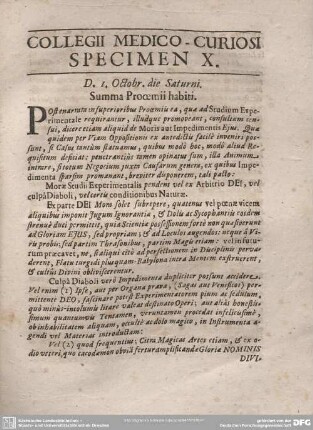 COLLEGII MEDICO-CURIOSI
SPECIMEN X.
D. 1. Octobr. die Saturni.
Summa Prooemii habiti.
Post enarrata in superioribus Prooemiis ea, quæ ad Studium Experimentale
requirantur, illudque promoveant, consultum censui,
dicere etiam aliquid de Moris aut Impedimentis Ejus. Quæ
quidem per Viam Oppositionis è contradictis facilè inveniri possunt,
si Casu tantùm statuamus, quibus modò hoc, modò aliud
Requisitum deficiat; penetrantius tamen opinatus sum, illa Animum
inire, si Statum Negotium juxta Causarum genera, ex quibus Impedimenta
sparsim promanant, breviter disponerem, tali pacto:
Moræ Studii Experimentalis pendent vel ex Arbitrio DEI, vel
culpâ Diaboli, vel certis conditionibus Naturæ.
Ex parte DEI Mora solet subrepere, quatenus vel pœnæ vicem
aliquibus imponit Jugum Ignorantiæ, & Dolis ac Sycophantiis eosdem
strenuè dini permittit, quia Scientiæ possessionem fortè non quæsiverunt
ad Gloriam EJUS, sed propriam; & ad Loculos augendos: neque à Viris
probis; sed partim Thrasonibus, partim Magis etiam: vel in futurum
præcavet, ne, si aliqui citò ad perfectionem in Disciplinis pervaderent,
Flatu turgedi plusquam Babylona intra Mentem exstruerent,
& cultus Divini obliviscerentur.
Culpâ Diaboli verò Impedimenta dupliciter possunt accidere.
Vel enim (1) Ipse, aut per Organa prava, (Sagas aut Veneficos) permittente
DEO, fascinare potest Experimentatorem pium ac sedulum;
quò minùs incolumis litare valeat destinatis Operi: aut aliàs honestissimum
quantumvis Tentamen, veruntamen procedat infelicissimè,
ob inhabilitatem aliquam, occultè ac dolo magico, in Instrumenta agendi
vel Materias introductam:
Vel (2) quod frequentius; Citra Magicas Artes etiam, & ex odio
veteri, quo cacodæmon obviã fertur amplificandæ Gloriæ NOMINIS
DIVI-